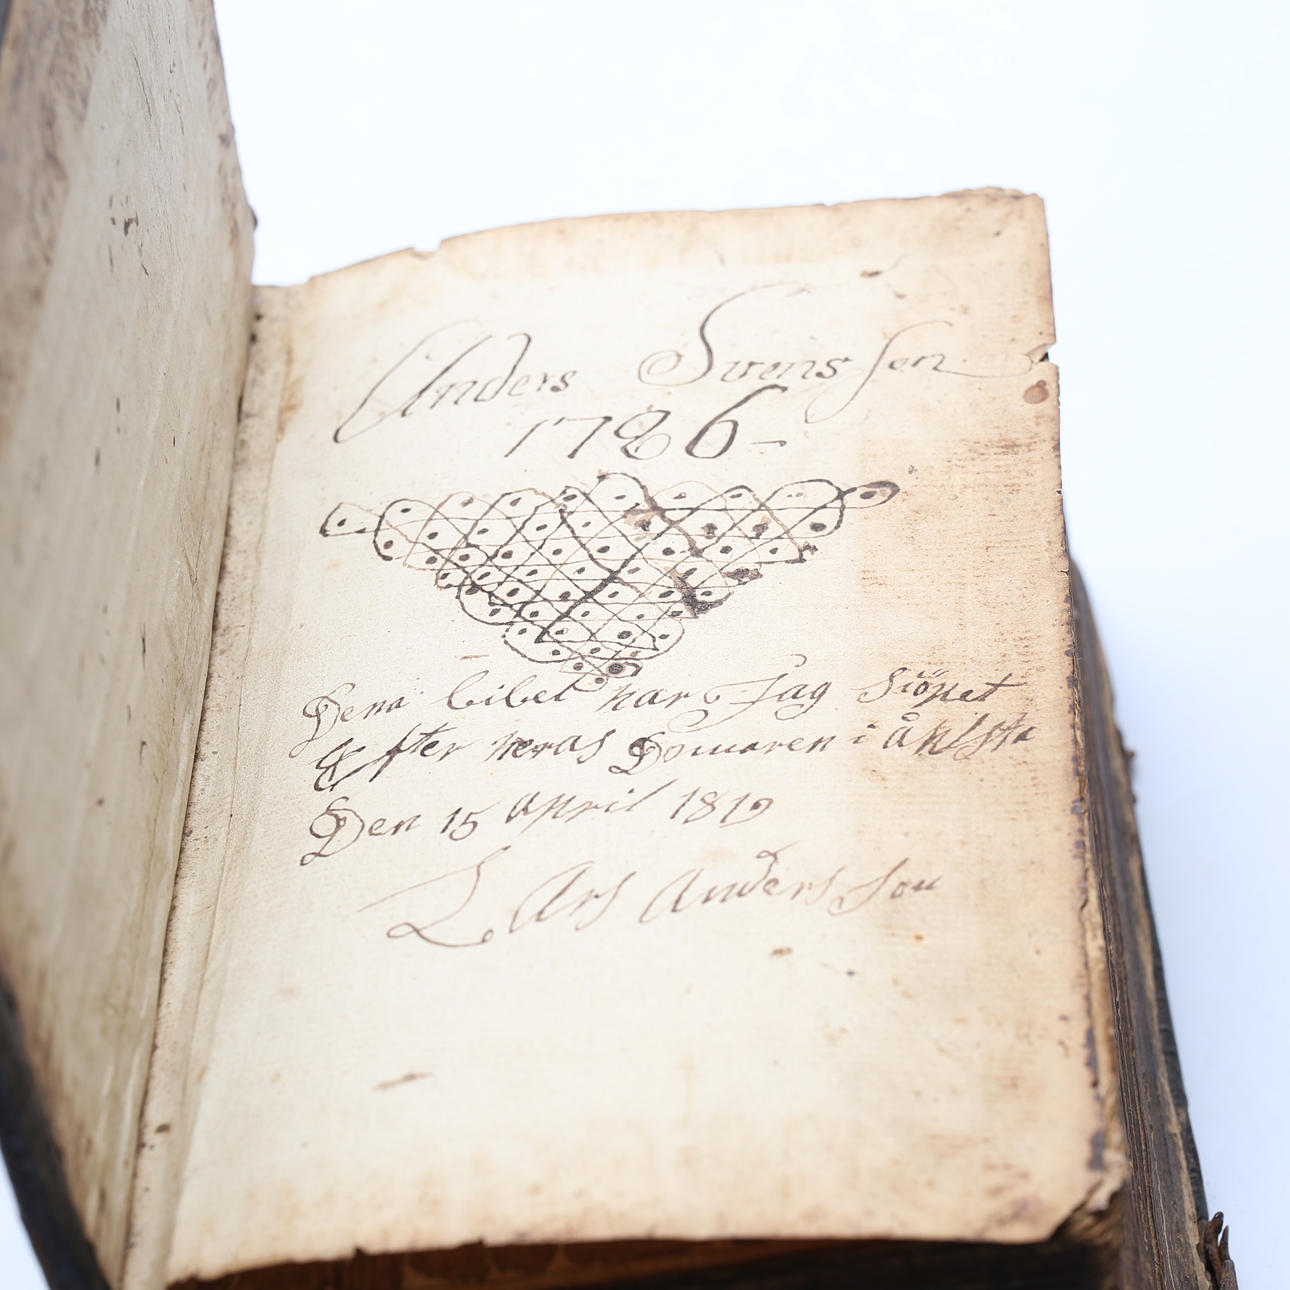 Anders Svensson
1786
Dena bibel har Jag Siöpet
Efter heras Domaren i åklsta
Den 15 April 1819
Lars Andersson